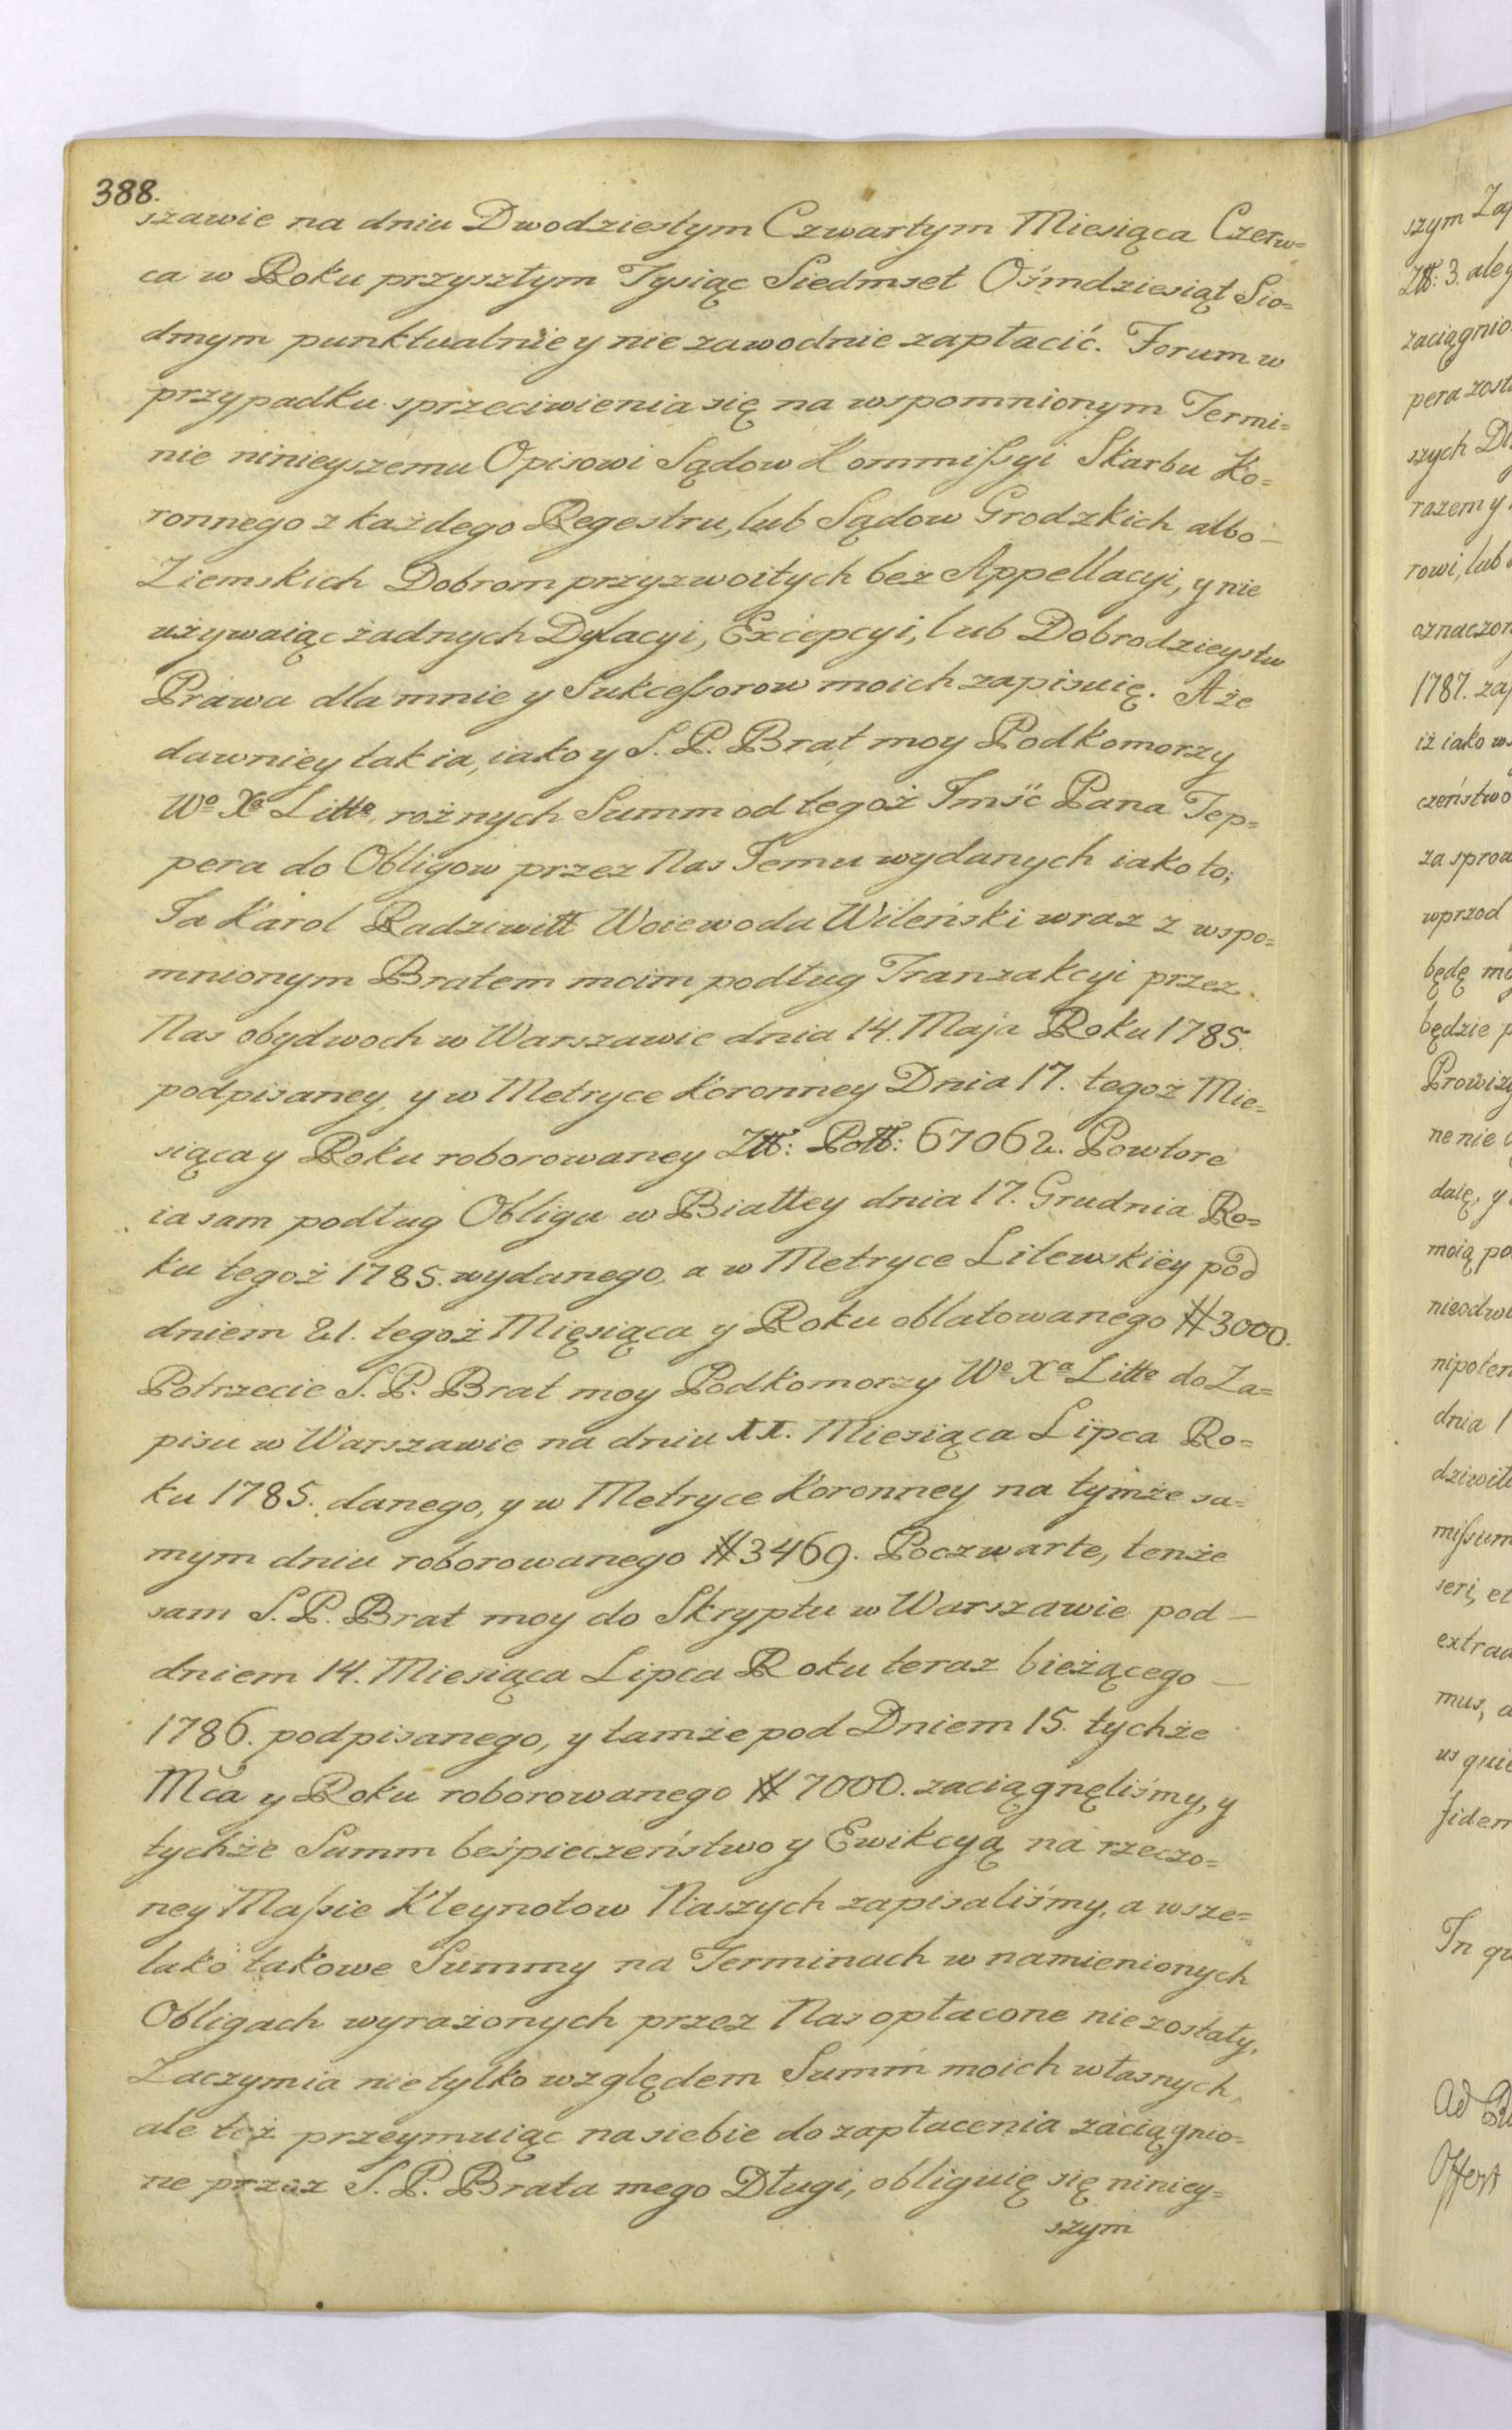 388.
szawie na dniu Dwodziestym Czwartym Miesiąca Czerw=
ca w Roku przyszłym Tysiąc Siedmset Ośmdziesiąt Sio=
dmym punktualnie y nie zawodnie zapłacić. Forum w
przypadku sprzeciwienia się na wspomnionym Termi=
nie ninieyszemu Opisowi Sądow Kommißyi Skarbu Ko=
ronnego z każdego Regestru, lub Sądow Grodzkich albo —
Ziemskich Dobrom przyzwoitych bez Appellacyi, y nie
używaiąc żadnych Dylacyi, Excepcyi, lub Dobrodzieystw
Prawa dla mnie y Sukceßorow moich zapisuię. A że
dawniey tak ia, iako y S. P. Brat moy Podkomorzy
Wo Xa Litto rożnych Summ od tegoż Imść Pana Tep=
pera do Obligow przez Nas Jemu wydanych iako to;
Ja Karol Radziwiłł Woiewoda Wileński wraz z wspo=
mnionym Bratem moim podług Tranzakcyi przez
Nas obydwoch w Warszawie dnia 14. Maja Roku 1785.
podpisaney, y w Metryce Koronney Dnia 17. tegoż Mie=
siąca y Roku roborowaney Złł: Poll: 67062. Powtore
ia sam podług Obligu w Białłey dnia 17. Grudnia Ro=
ku tegoż 1785. wydanego, a w Metryce Litewskiey pod
dniem 21. tegoż Mięsiąca y Roku oblatowanego # 3000.
Potrzecie S. P. Brat moy Podkomorzy Wo Xa Litto do Za=
pisu w Warszawie na dniu XX. Miesiąca Lipca Ro=
ku 1785. danego, y w Metryce Koronney na tymże sa=
mym dniu roborowanego # 3469. Poczwarte, tenże
sam S. P. Brat moy do Skryptu w Warszawie pod —
dniem 14. Miesiąca Lipca Roku teraz bieżącego —
1786. podpisanego, y tamże pod Dniem 15. tychże
Mca y Roku roborowanego # 7000. zaciągnęliśmy, y
tychże Summ beśpieczeństwo y Ewikcyą na rzeczo=
ney Maßie Kleynotow Naszych zapisaliśmy, a wsze=
lako takowe Summy na Terminach w namienionych
Obligach wyrażonych przez Nas opłacone nie zostały,
Zaczym ia nie tylko względem Summ moich własnych,
ale też przeymuiąc na siebie do zapłacenia zaciągnio=
ne przez S. P. Brata mego Długi, obliguię się niniey=
szym
szym Zap
Złł: 3. aleg
zaciągnio
pera zost
szych Do
razem y
rowi, lub
oznaczon
1787. zap
iż iako w
czeństwo
za sprow
wprzod
będę mo
będzie p
Prowizy
ne nie
daię, y
moią po
nieodwo
nipoten
dnia 1
dziwiłł
mißum
seri, et
extrad
mus, a
us qui
fidem
In qu
Ad
Offert